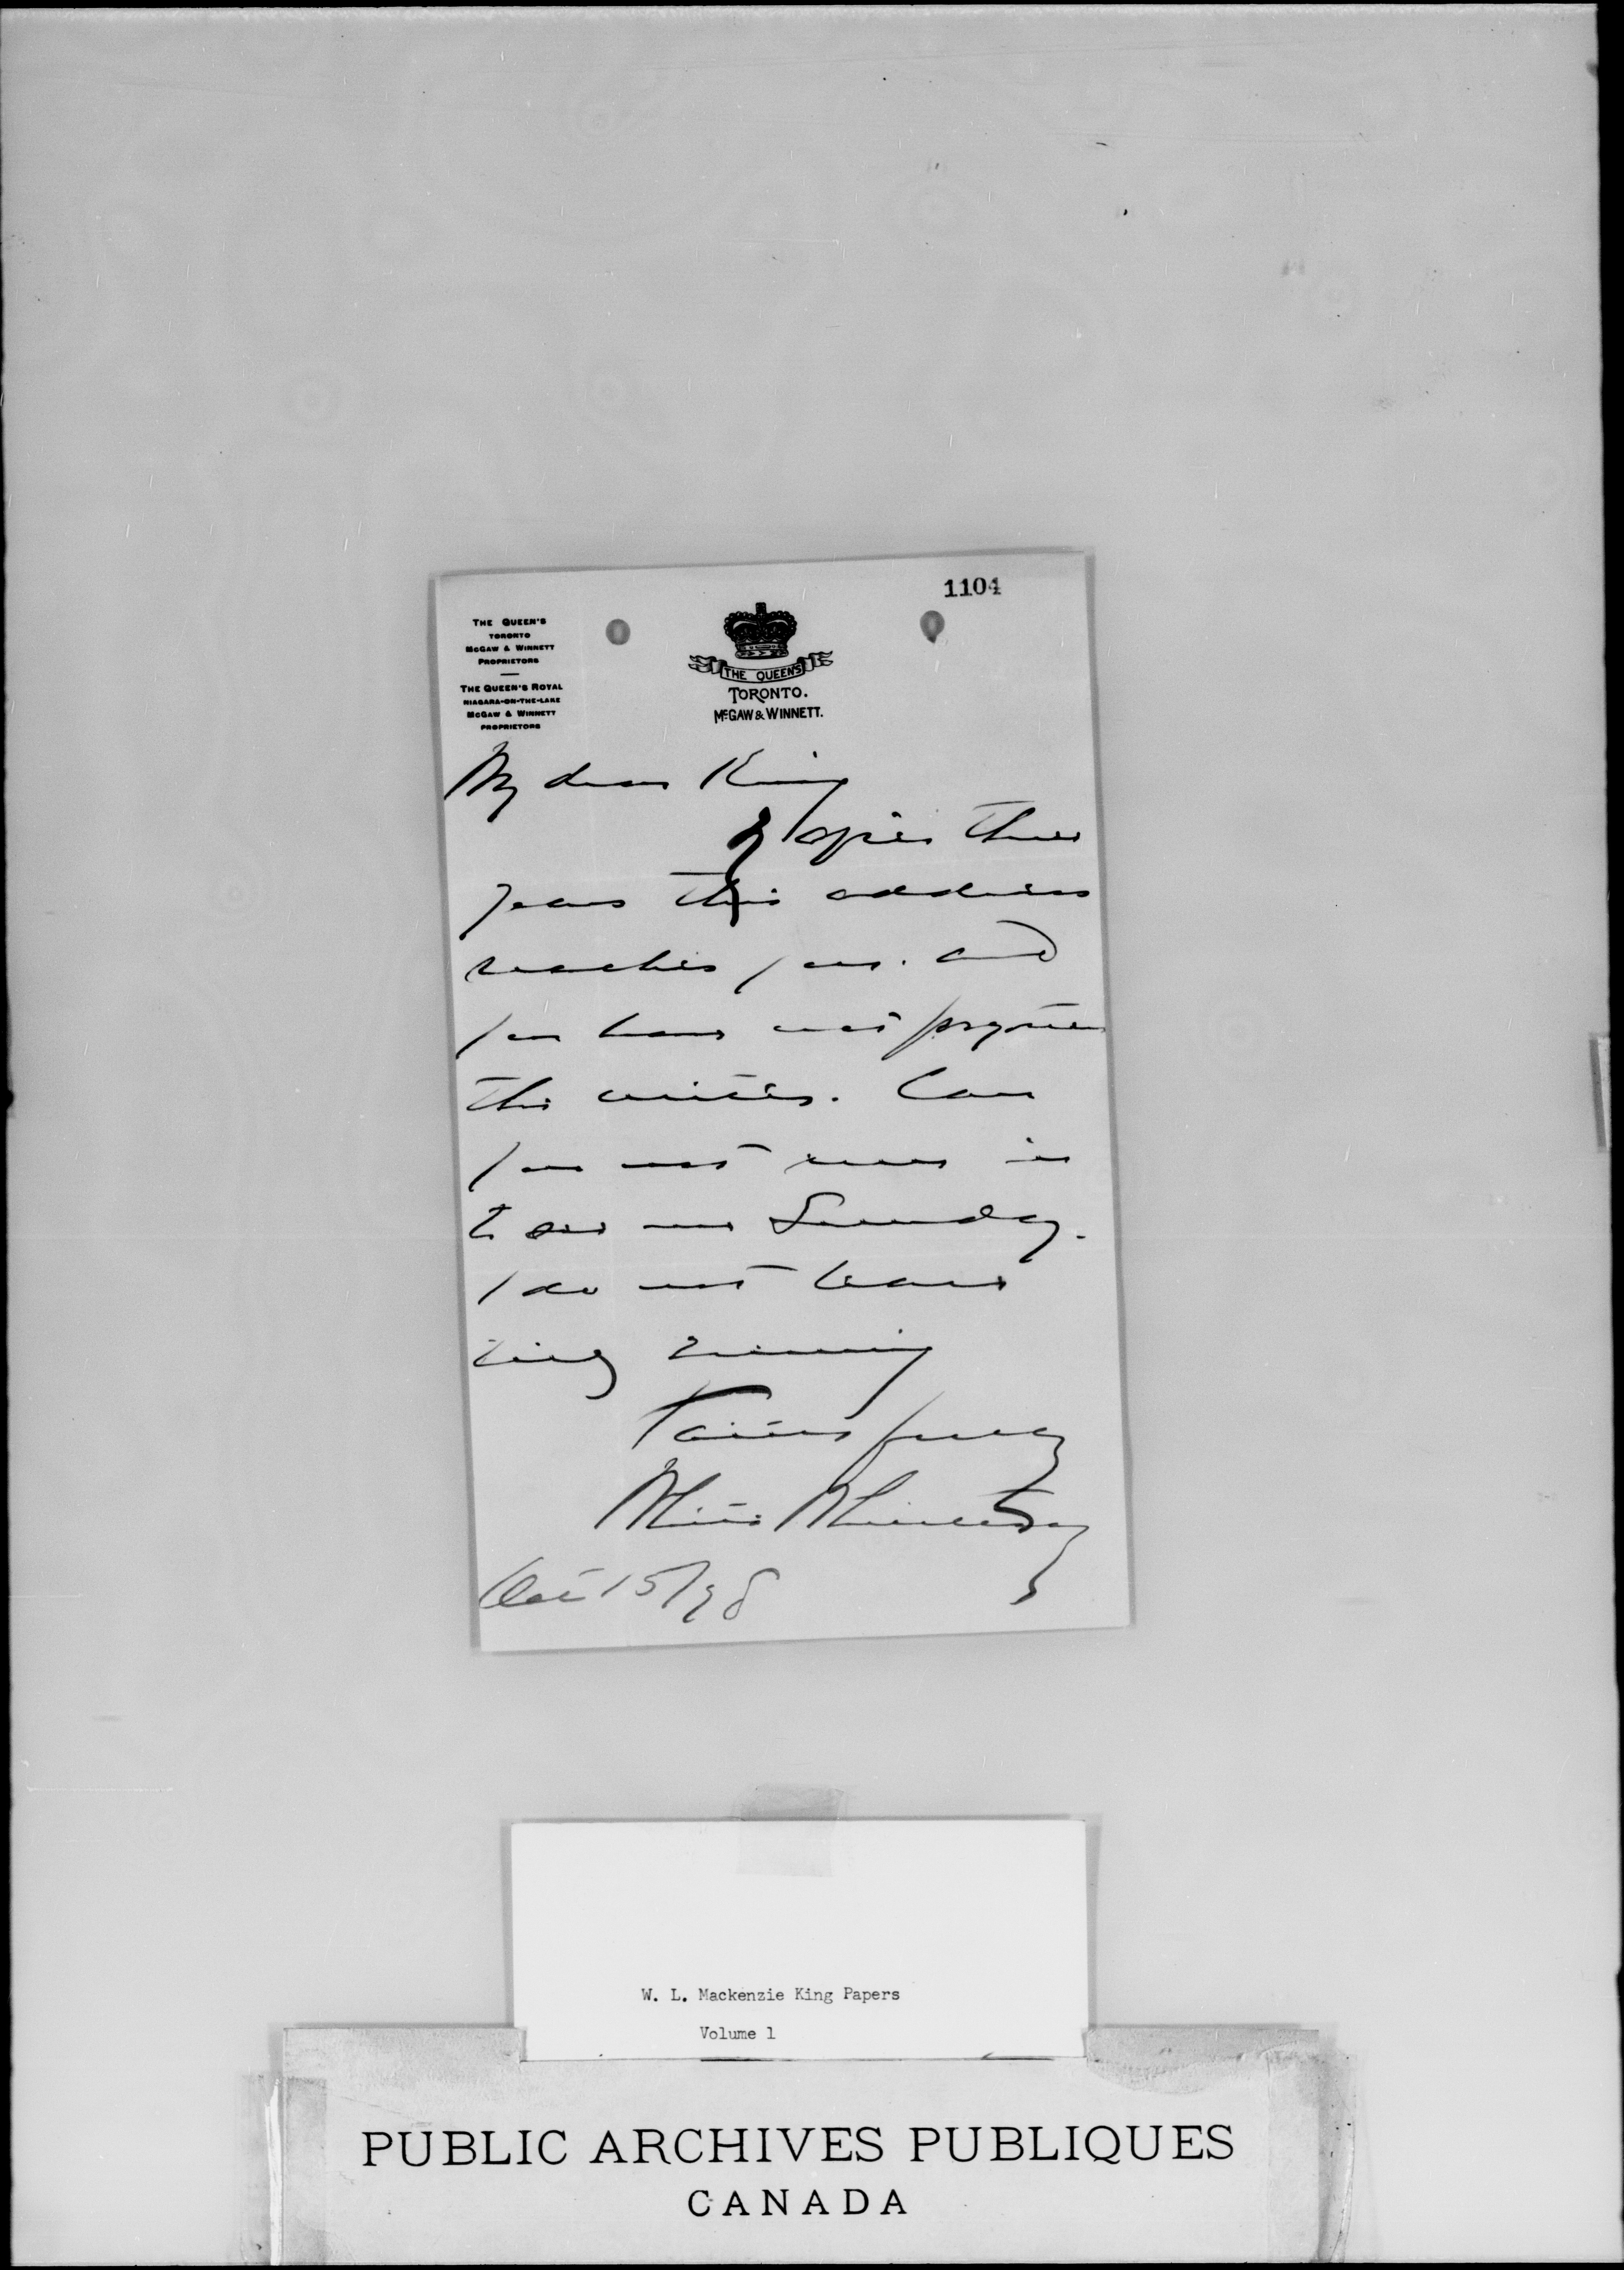 1104
THE QUEEN'S
TORONTO
McGAW & WINNETT
PROPRIETORS
THE QUEEN'S ROYAL
NIAGARA-ON-THE-LAKE
McGAW & WINNETT
PROPRIETORS
THE QUEEN'S
TORONTO.
McGAW & WINNETT.
My dear King
If after three
years this address
reaches you. and
you have not forgotten
the writer. Can
you not run in
to see me Sunday.
I do not leave
until evening
Faithfully
Oct 15/98
W. L. Mackenzie King Papers
Volume 1
PUBLIC ARCHIVES PUBLIQUES
CANADA